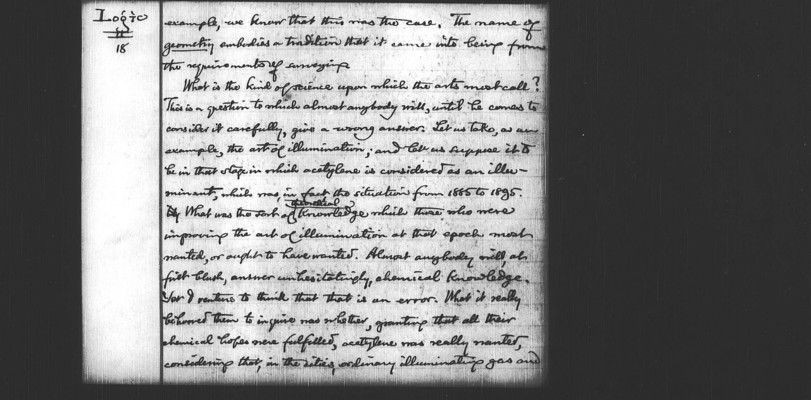 Logic
II
18
example, we know that this was the case. The name of
geometry embodies a tradition that it came into being from
the requirements of surveying
What is the kind of science upon which the arts most call?
This is a question to which almost anybody will, until he comes to
consider it carefully, give a wrong answer. Let us take, as an
example, the art of illumination; and let us suppose it to
be in that stage in which acetylene is considered as an illu-
minant, which was, in fact the situation from 1885 to 1895.
What was the sort of knowledge which those who were
improving the art of illumination at that epoch most
wanted, or ought to have wanted. Almost anybody will, at
first blush, answer unhesitatingly, chemical knowledge.
Yet I venture to think that that is an error. What it really
behooved them to inquire was whether, granting that all their
chemical hopes were fulfilled, acetylene was really wanted,
considering that, in the cities, ordinary illuminating gas and